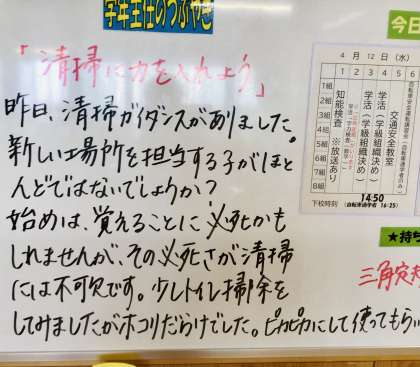 学年主任のつぶやき
「清掃に力を入れよう」
昨日、清掃ガイダンスがありました。
新しい場所を担当する子がほと
んどではないでしょうか?
始めは、覚えることに必死かも
しれませんが、その必死さが清掃
には不可欠です。少しトイレ掃除を
してみましたがホコリだらけでした。ピカピカにして使ってもらい
今日
4月12日(水)
1 2 3 4 5 6
自転車安全運転教習(自転車通学者のみ)
交通安全教室
学活(学級組織決め)
学活(学級組織決め)
知能検査 ※放送あり
1組
2組
3組
4組
5組
6組
7組
8組
下校時刻
14:50
(自転車通学者 16:25)
★持ち
三角定規